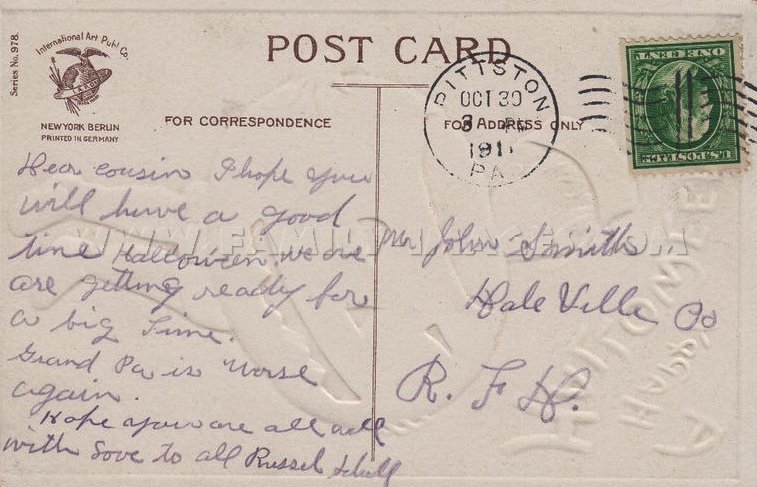 Series No. 978.
International Art Publ. Co.
NEW YORK BERLIN
PRINTED IN GERMANY
POST CARD
FOR CORRESPONDENCE
FOR ADDRESS ONLY
PITTSTON
OCT 30
1911
PA
U.S. POSTAGE
ONE CENT
Dear cousin I hope you
will have a good
time Halloween we are
are getting ready for
a big time.
Grand Pa is worse
again.
Hope you are all well
with love to all Russel
Mr John Smith
Dale Ville Pa
R. F. D.
WWW.FAMILY-IMAGES.COM
A HAPPY
HALLOWE'EN